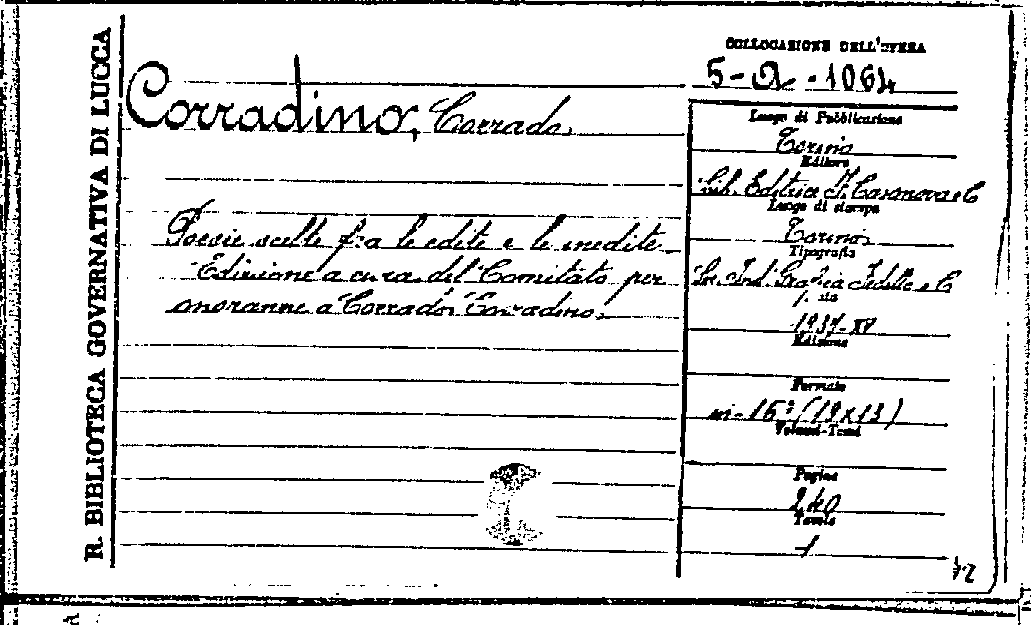 R. BIBLIOTECA GOVERNATIVA DI LUCCA
COLLOCAZIONE DELL'OPERA
5-Q-1064
Corradino, Corrado.
Poesie scelte fra le edite e le inedite
Edizione a cura del Comitato per
onoranze a Corrado Corradino.
Luogo di Pubblicazione
Torino
Editore
Lib. Editrice F. Casanova e C
Luogo di stampa
Torino
Tipografia
Soc. Ind. Grafica Fedetto e C
1937-XV
Edizione
Formato
in-16° (19x13)
Volumi-Tomi
Pagine
240
Tavole
1